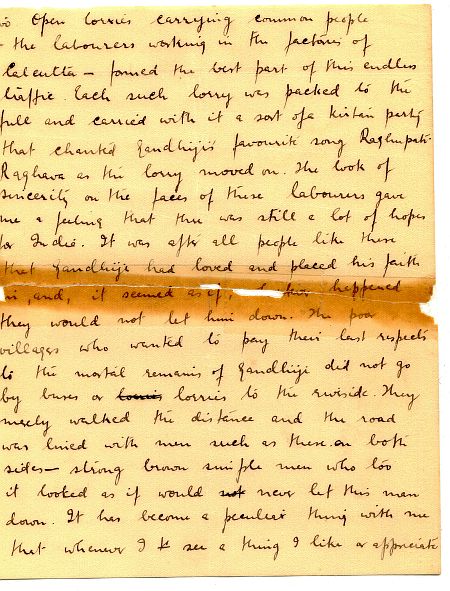 too Open lorries carrying common people
- the labourers working in the factories of
Calcutta — formed the best part of this endless
traffic. Each such lorry was packed to the
full and carried with it a sort of a kirtan party
that chanted Gandhiji's favourite song Raghupati
Raghava as the lorry moved on. The look of
sincerity on the faces of these labourers gave
me a feeling that there was still a lot of hopes
for India. It was after all people like these
that Gandhiji had loved and placed his faith
in, and, it seemed as if, happened
they would not let him down. The poor
villagers who wanted to pay their last respects
to the mortal remains of Gandhiji did not go
by buses or lorries to the riverside. They
merely walked the distance and the road
was lined with men such as these on both
sides — strong brown simple men who too
it looked as if would not never let this man
down. It has become a peculiar thing with me
that whenever I see a thing I like or appreciate